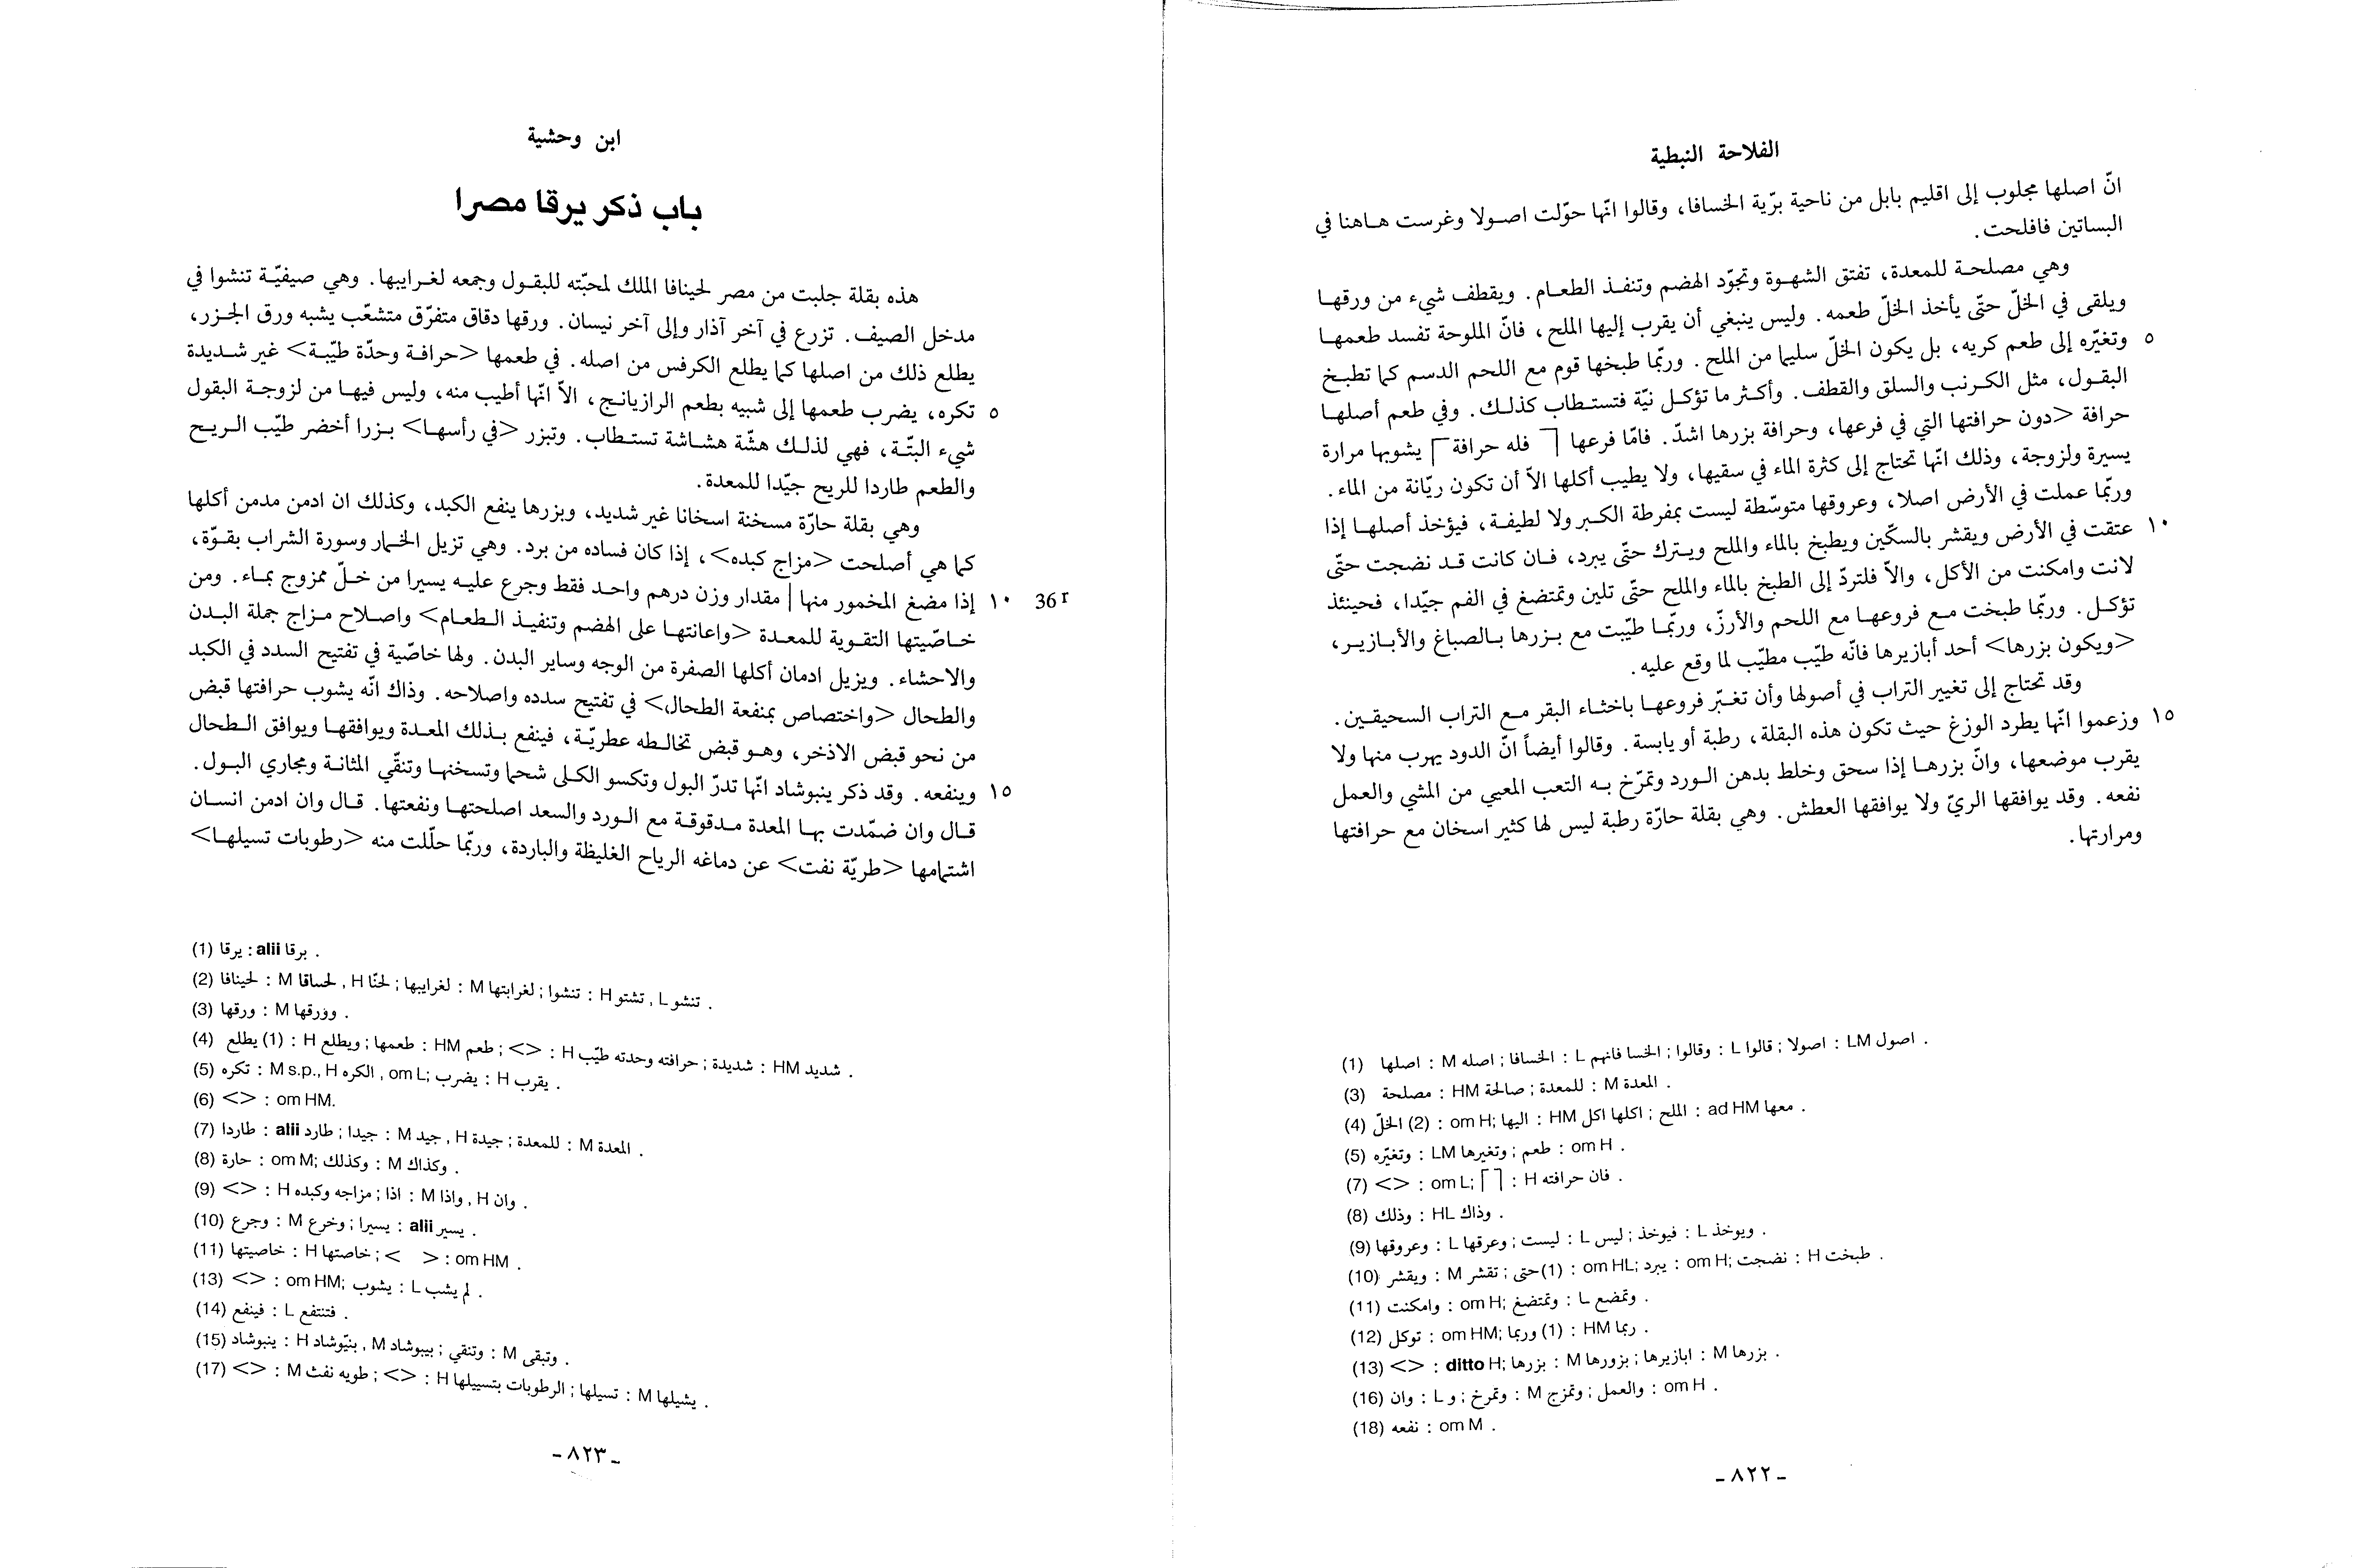 الفلاحة النبطية
انّ اصلها مجلوب إلى اقليم بابل من ناحية برّية الخسافا، وقالوا انّها حوّلت اصولا وغرست هاهنا في
البساتين فافلحت.
وهي مصلحة للمعدة، تفتق الشهوة وتجوّد الهضم وتنفذ الطعام. ويقطف شيء من ورقها
ويلقى في الخلّ حتّى يأخذ الخلّ طعمه. وليس ينبغي أن يقرب إليها الملح، فانّ الملوحة تفسد طعمها
٥ وتغيّره إلى طعم كريه، بل يكون الخلّ سليما من الملح. وربّما طبخها قوم مع اللحم الدسم كما تطبخ
البقول، مثل الكرنب والسلق والقطف. وأكثر ما تؤكل نيّة فتستطاب كذلك. وفي طعم أصلها
حرافة <دون حرافتها التي في فرعها، وحرافة بزرها اشدّ. فامّا فرعها ⌉ فله حرافة ⌈ يشوبها مرارة
يسيرة ولزوجة، وذلك انّها تحتاج إلى كثرة الماء في سقيها، ولا يطيب أكلها الاّ أن تكون ريّانة من الماء.
وربّما عملت في الأرض اصلا، وعروقها متوسّطة ليست بمفرطة الكبر ولا لطيفة، فيؤخذ أصلها إذا
١٠ عتقت في الأرض ويقشر بالسكّين ويطبخ بالماء والملح ويترك حتّى يبرد، فان كانت قد نضجت حتّى
لانت وامكنت من الأكل، والاّ فلتردّ إلى الطبخ بالماء والملح حتّى تلين وتمتضغ في الفم جيّدا، فحينئذ
تؤكل. وربّما طبخت مع فروعها مع اللحم والأرزّ، وربّما طيّبت مع بزرها بالصباغ والأبازير،
<ويكون بزرها> أحد أبازيرها فانّه طيّب مطيّب لما وقع عليه.
وقد تحتاج إلى تغيير التراب في أصولها وأن تغبّر فروعها باخثاء البقر مع التراب السحيقين.
١٥ وزعموا انّها يطرد الوزغ حيث تكون هذه البقلة، رطبة أو يابسة. وقالوا أيضاً انّ الدود يهرب منها ولا
يقرب موضعها، وانّ بزرها إذا سحق وخلط بدهن الورد وتمرّخ به التعب المعيي من المشي والعمل
نفعه. وقد يوافقها الريّ ولا يوافقها العطش. وهي بقلة حارّة رطبة ليس لها كثير اسخان مع حرافتها
ومرارتها.
(1) اصلها : M اصله ; الخسافا : L الخسا فانهم ; وقالوا : L قالوا ; اصولا : LM اصول .
(3) مصلحة : HM صالحة ; للمعدة : M المعدة .
(4) الخلّ (2) : om H; اليها : HM اكلها اكل ; الملح : ad HM معها .
(5) وتغيّره : LM وتغيرها ; طعم : om H .
(7) <> : om L; ⌈ ⌉ : H فان حرافته .
(8) وذلك : HL وذاك .
(9) وعروقها : L وعرقها ; ليست : L ليس ; فيوخذ : L ويوخذ .
(10) ويقشر : M تقشر ; حتى (1) : om HL; يبرد : om H; نضجت : H طبخت .
(11) وامكنت : om H; وتمتضغ : L وتمضغ .
(12) توكل : om HM; وربما (1) : HM ربما .
(13) <> : ditto H; بزرها : M بزورها ; ابازيرها : M بزرها .
(16) وان : L و ; وتمرخ : M وتمزج ; والعمل : om H .
(18) نفعه : om M .
- ٨٢٢ -
ابن وحشية
باب ذكر يرقا مصرا
هذه بقلة جلبت من مصر لحينافا الملك لمحبّته للبقول وجمعه لغرايبها. وهي صيفيّة تنشوا في
مدخل الصيف. تزرع في آخر آذار وإلى آخر نيسان. ورقها دقاق متفرّق متشعّب يشبه ورق الجزر،
يطلع ذلك من اصلها كما يطلع الكرفس من اصله. في طعمها <حرافة وحدّة طيّبة> غير شديدة
٥ تكره، يضرب طعمها إلى شبيه بطعم الرازيانج، الاّ انّها أطيب منه، وليس فيها من لزوجة البقول
شيء البتّة، فهي لذلك هشّة هشاشة تستطاب. وتبزر <في رأسها> بزرا أخضر طيّب الريح
والطعم طاردا للريح جيّدا للمعدة.
وهي بقلة حارّة مسخنة اسخانا غير شديد، وبزرها ينفع الكبد، وكذلك ان ادمن مدمن أكلها
كما هي أصلحت <مزاج كبده>، إذا كان فساده من برد. وهي تزيل الخمار وسورة الشراب بقوّة،
36r ١٠ إذا مضغ المخمور منها | مقدار وزن درهم واحد فقط وجرع عليه يسيرا من خلّ ممزوج بماء. ومن
خاصّيتها التقوية للمعدة <واعانتها على الهضم وتنفيذ الطعام> واصلاح مزاج جملة البدن
والاحشاء. ويزيل ادمان أكلها الصفرة من الوجه وساير البدن. ولها خاصّية في تفتيح السدد في الكبد
والطحال <واختصاص بمنفعة الطحال> في تفتيح سدده واصلاحه. وذاك انّه يشوب حرافتها قبض
من نحو قبض الاذخر، وهو قبض تخالطه عطريّة، فينفع بذلك المعدة ويوافقها ويوافق الطحال
١٥ وينفعه. وقد ذكر ينبوشاد انّها تدرّ البول وتكسو الكلى شحما وتسخنها وتنقّي المثانة ومجاري البول.
قال وان ضمّدت بها المعدة مدقوقة مع الورد والسعد اصلحتها ونفعتها. قال وان ادمن انسان
اشتمامها <طريّة نفت> عن دماغه الرياح الغليظة والباردة، وربّما حلّلت منه <رطوبات تسيلها>
(1) يرقا : alii برقا .
(2) لحينافا : M لحساقا , H لحنّا ; لغرايبها : M لغرابتها ; تنشوا : H تشتو , L تنشو .
(3) ورقها : M وورقها .
(4) يطلع (1) : H ويطلع ; طعمها : HM طعم ; <> : H حرافته وحدته طيّب ; شديدة : HM شديد .
(5) تكره : M s.p., H الكره , om L; يضرب : H يقرب .
(6) <> : om HM.
(7) طاردا : alii طارد ; جيدا : M جيد , H جيدة ; للمعدة : M المعدة .
(8) حارة : om M; وكذلك : M وكذاك .
(9) <> : H مزاجه وكبده ; اذا : M واذا , H وان .
(10) وجرع : M وخرع ; يسيرا : alii يسير .
(11) خاصيتها : H خاصتها ; < > : om HM .
(13) <> : om HM; يشوب : L لم يشب .
(14) فينفع : L فتنتفع .
(15) ينبوشاد : H بنيّوشاد , M بيبوشاد ; وتنقي : M وتبقى .
(17) <> : M طويه نفث ; <> : H الرطوبات بتسييلها ; تسيلها : M يشيلها .
- ٨٢٣ -